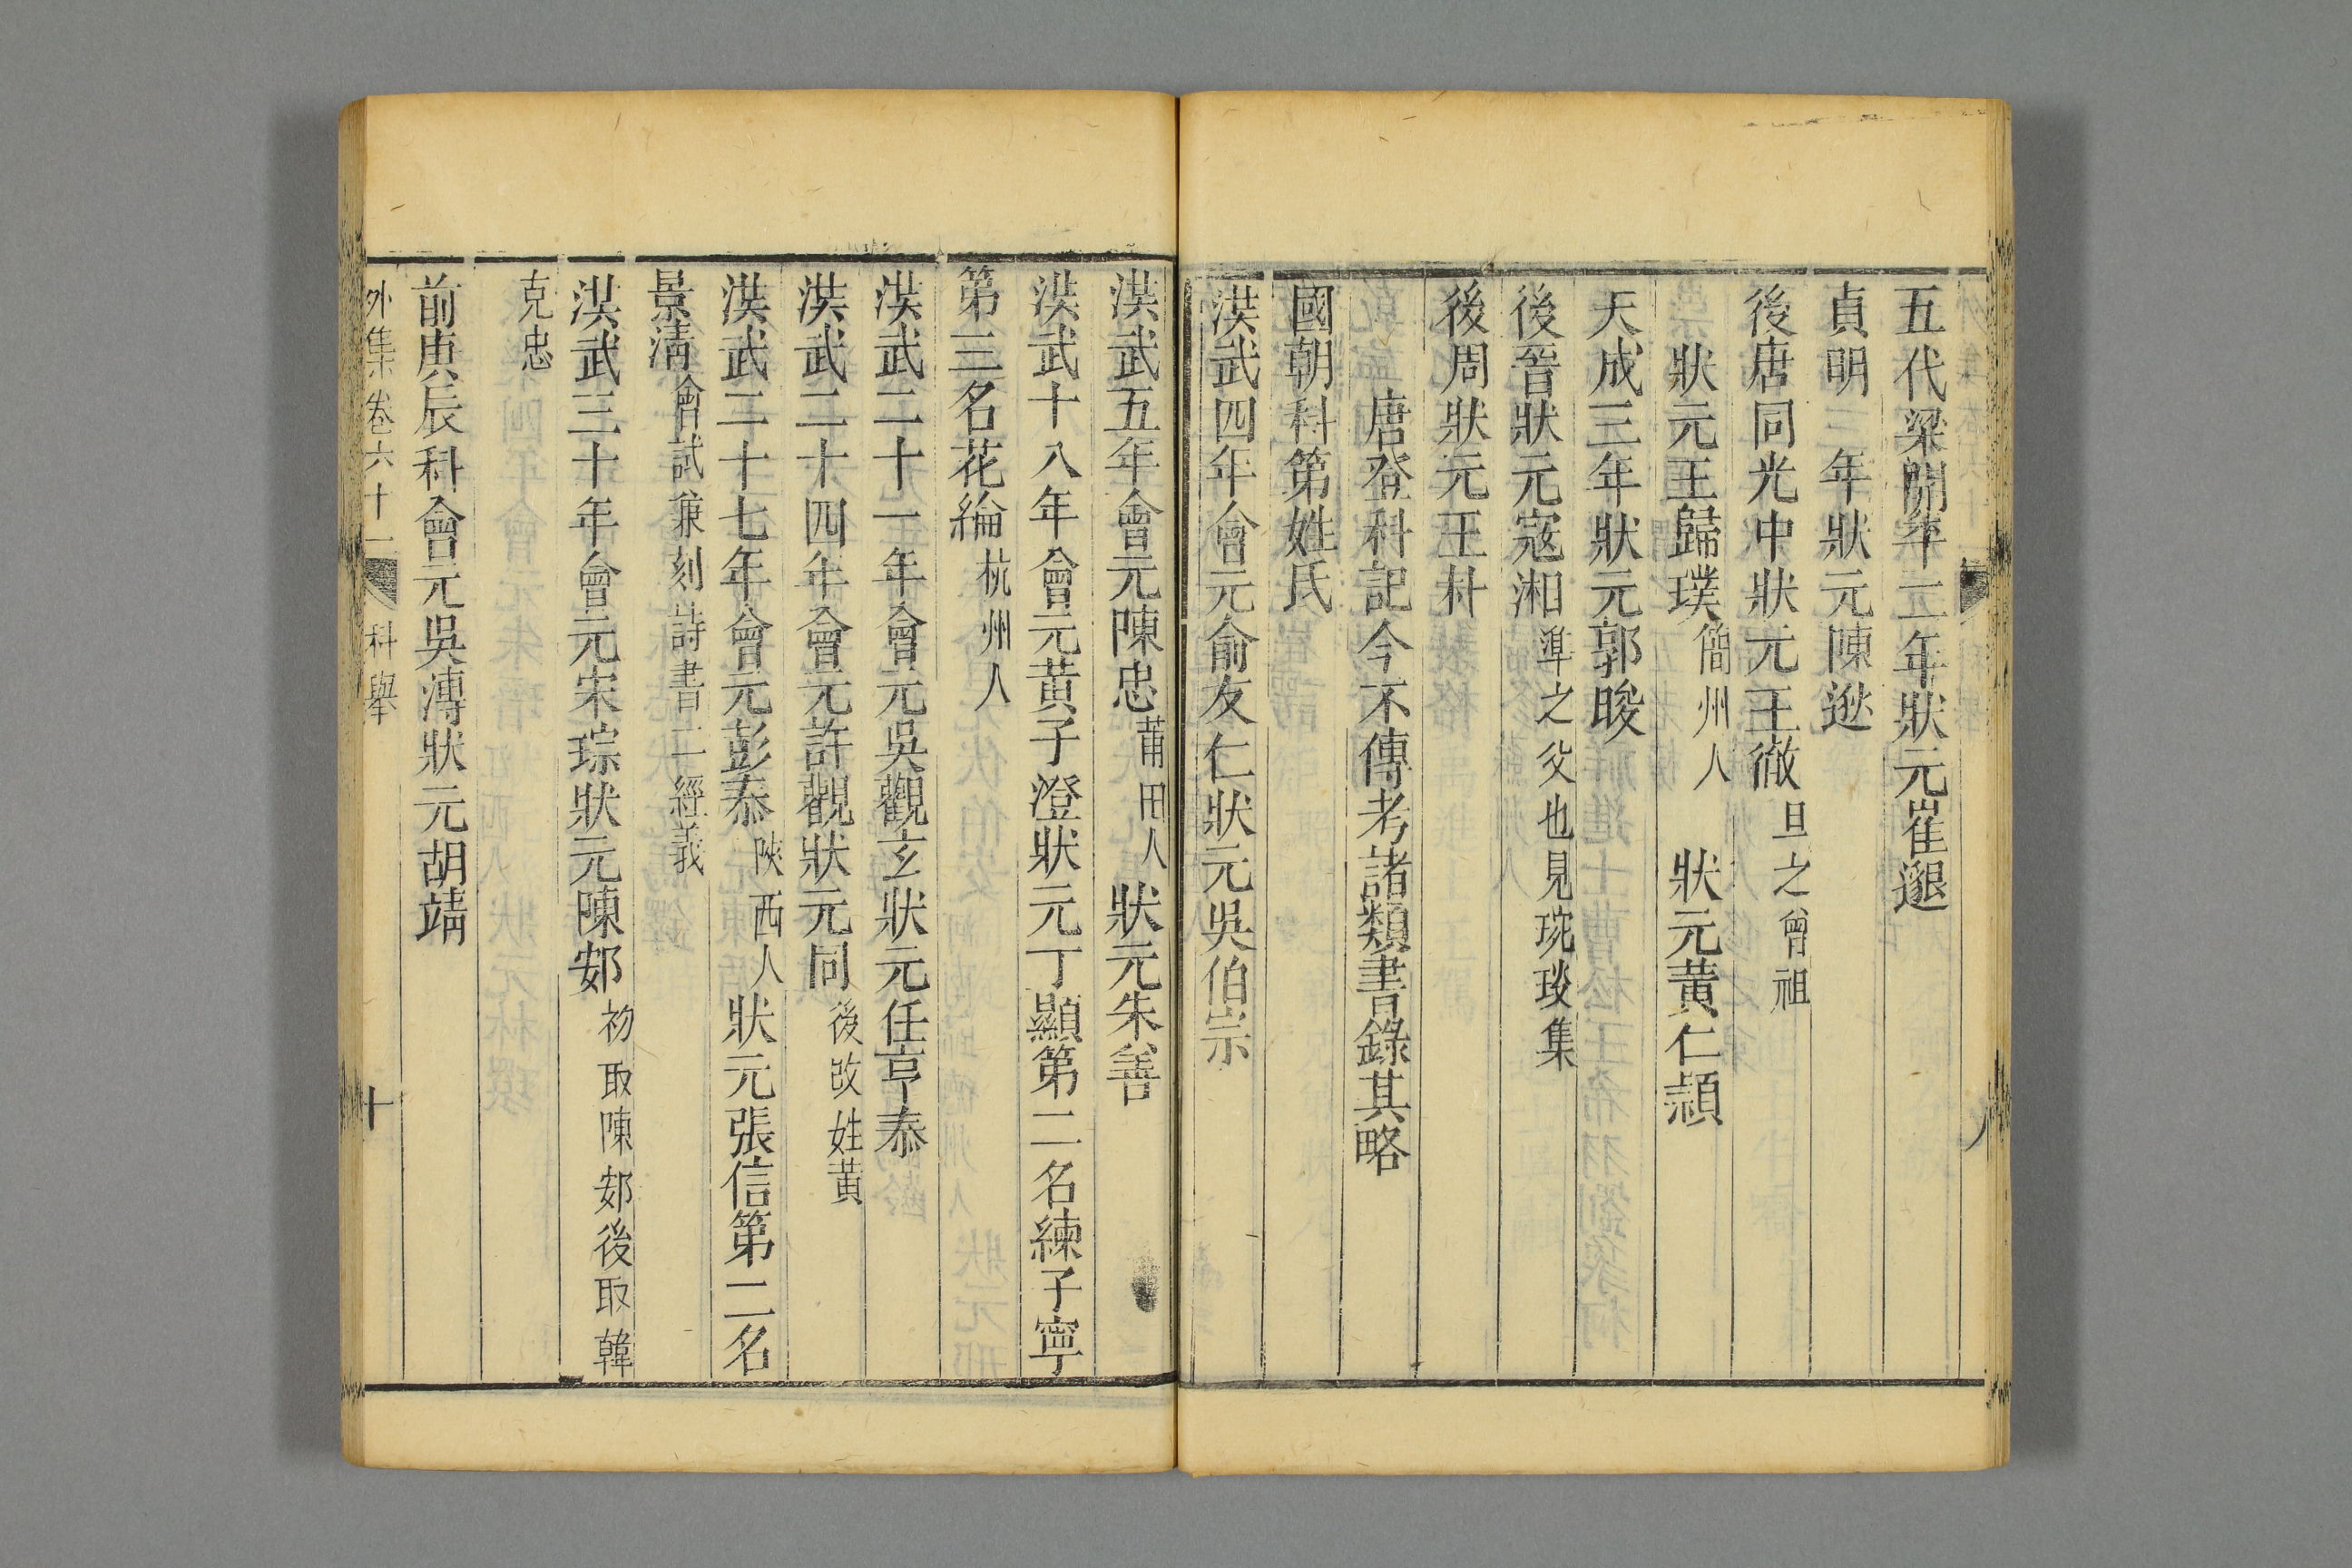 五代梁開平二年狀元崔邈
貞明三年狀元陳逖
後唐同光中狀元王徹旦之曾祖
狀元王歸璞簡州人 狀元黃仁頴
天成三年狀元郭晙
後晉狀元寇湘準之父也見琬琰集
後周狀元王朴
唐登科記今不傳考諸類書錄其略
國朝科第姓氏
洪武四年會元俞友仁狀元吳伯宗
洪武五年會元陳忠莆田人狀元朱善
洪武十八年會元黃子澄狀元丁顯第二名練子寧
第三名花綸杭州人
洪武二十一年會元吳觀玄狀元任亨泰
洪武二十四年會元許觀狀元同後改姓黃
洪武二十七年會元彭泰陝西人狀元張信第二名
景清會試兼刻詩書二經義
洪武三十年會元宋琮狀元陳䢿初取陳䢿後取韓
克忠
前庚辰科會元吳溥狀元胡靖
外集卷六十一 科舉 十